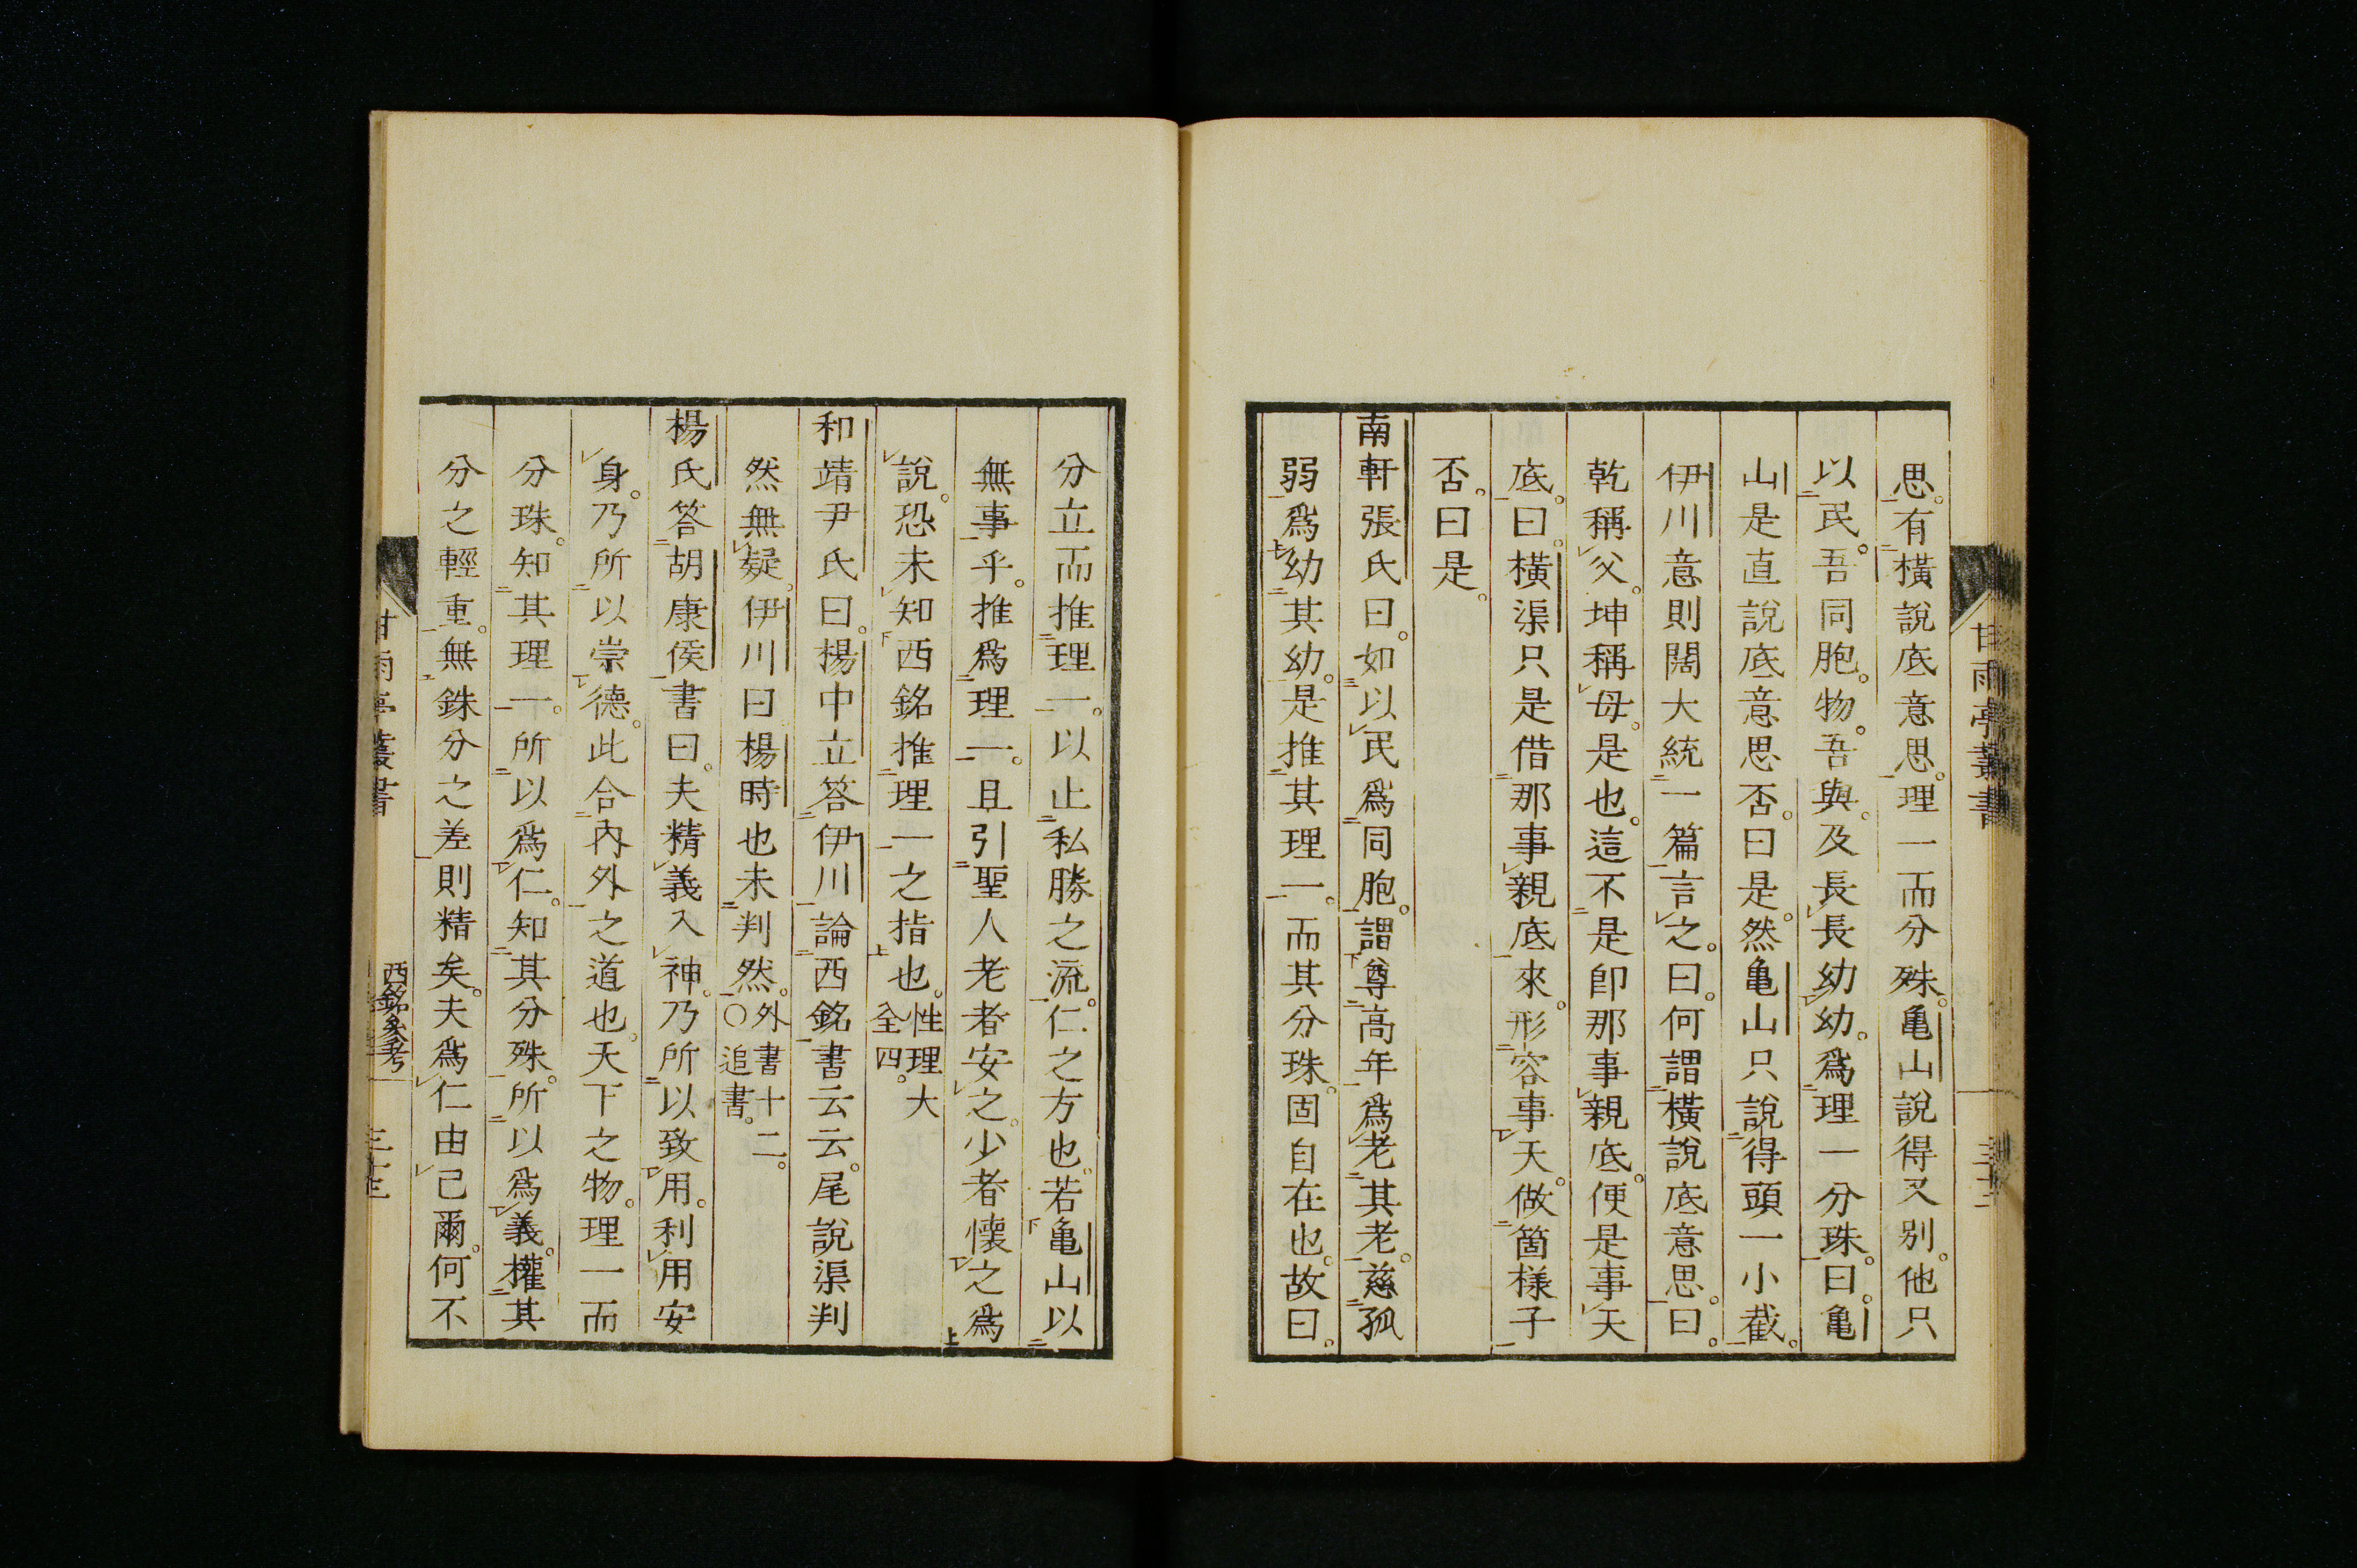 思。有橫說底意思。理一而分殊。亀山說得又别。他只
以民。吾同胞。物。吾與。及長長幼幼。爲理一分殊。曰。亀
山是直說底意思否。曰是。然亀山只說得頭一小截。
伊川意則闊大統一篇言之。曰。何謂橫說底意思。曰。
乾稱父。坤稱母。是也。這不是卽那事親底。便是事天
底。曰。橫渠只是借那事親底來。形容事天。做箇樣子
否。曰是。
南軒張氏曰。如以民爲同胞。謂尊高年爲老其老。慈孤
弱爲幼其幼。是推其理一。而其分殊。固自在也。故曰。
甘雨亭叢書
分立而推理一。以止私勝之流。仁之方也。若亀山以
無事乎。推爲理一。且引聖人老者安之。少者懷之爲
說。恐未知西銘推理一之指也。性理大
全四。
和靖尹氏曰。楊中立答伊川論西銘書云云。尾說渠判
然無疑。伊川曰楊時也未判然。外書十二。
〇追書。
楊氏答胡康侯書曰。夫精義入神。乃所以致用。利用安
身。乃所以崇德。此合內外之道也。天下之物。理一而
分殊。知其理一。所以爲仁。知其分殊。所以爲義。權其
分之輕重。無銖分之差則精矣。夫爲仁由己爾。何不
甘雨亭叢書
西銘參考